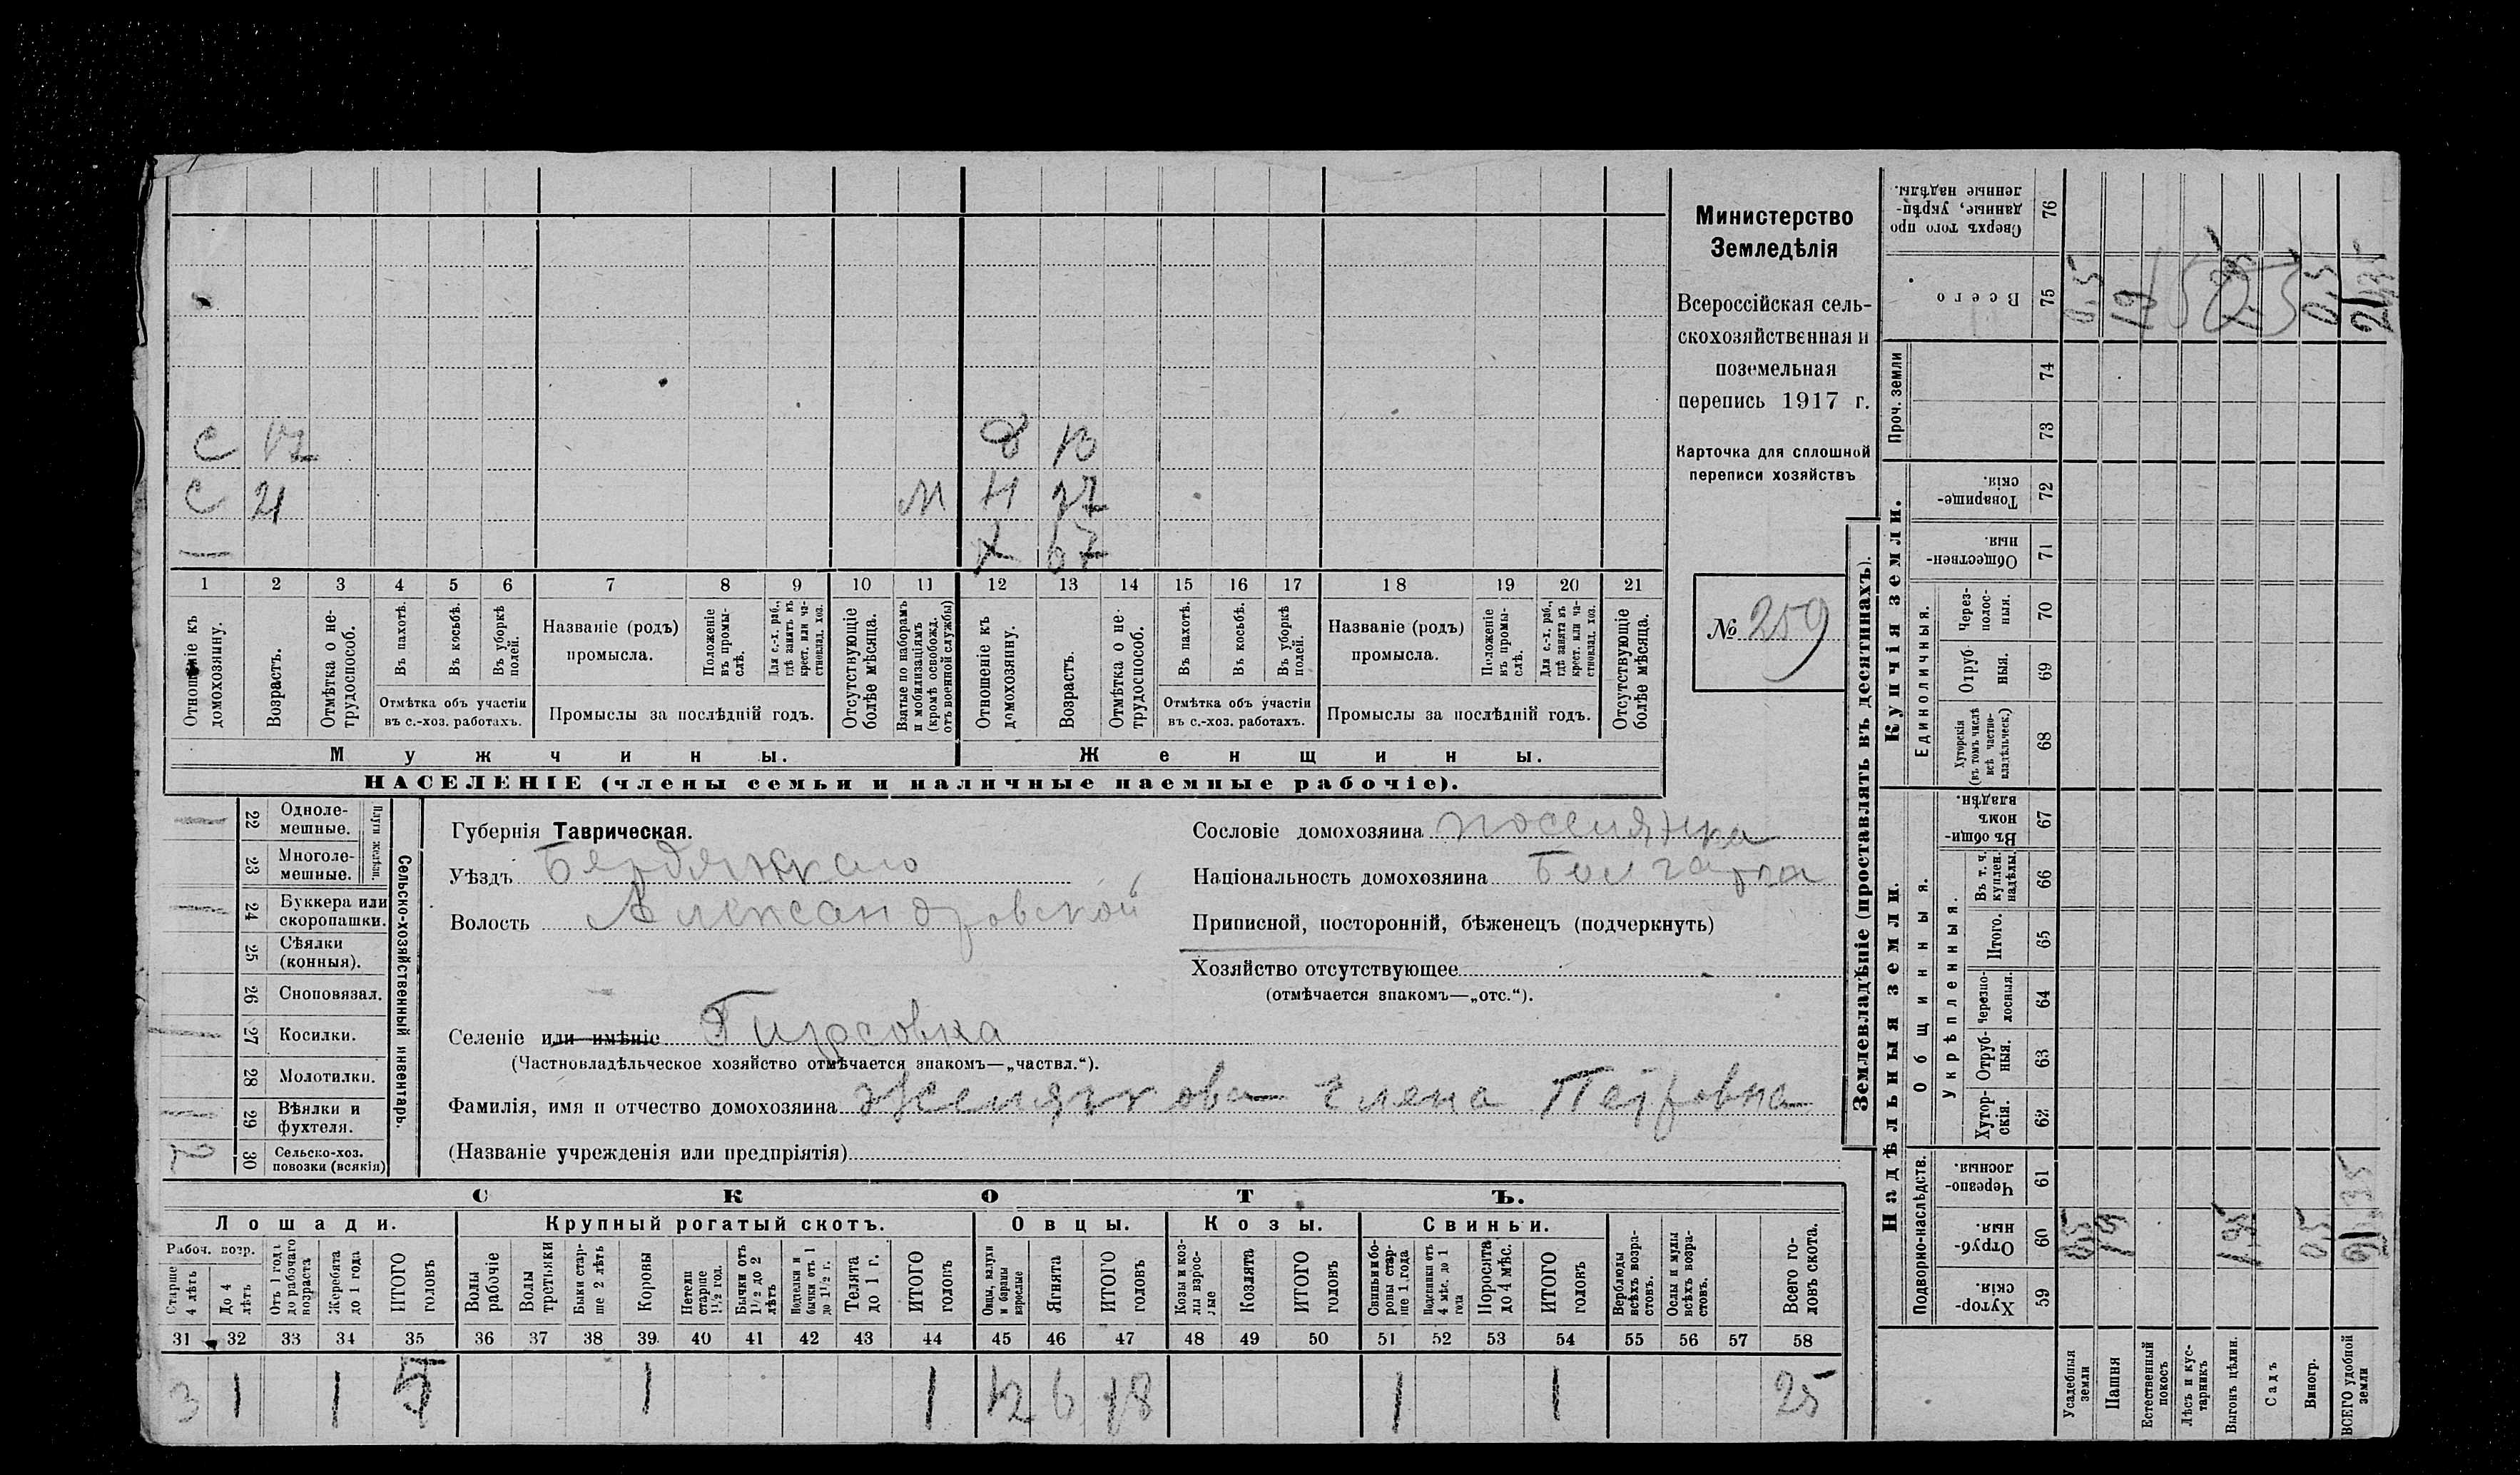 С 12 д 13
С 21 М Н 17
— Х 67
1 2 3 4 5 6 7 8 9 10 11 12 13 14 15 16 17 18 19 20 21
Отношеніе къ домохозяину.
Возрастъ.
Отмѣтка о нетрудоспособ.
Въ пахотѣ.
Въ косьбѣ.
Въ уборкѣ полей.
Отмѣтка объ участіи
въ с.-хоз. работахъ.
Названіе (родъ)
промысла.
Положеніе въ промыслѣ.
Для с.-х. раб., гдѣ занятъ въ крест. или частновлад. хоз.
Промыслы за послѣдній годъ.
Отсутствующіе болѣе мѣсяца.
Взятые по наборамъ и мобилизаціямъ (кромѣ освобожд. отъ военной службы)
Отношеніе къ домохозяину.
Возрастъ.
Отмѣтка о нетрудоспособ.
Въ пахотѣ.
Въ косьбѣ.
Въ уборкѣ полей.
Отмѣтка объ участіи
въ с.-хоз. работахъ.
Названіе (родъ)
промысла.
Положеніе въ промыслѣ.
Для с.-х. раб., гдѣ занята въ крест. или частновлад. хоз.
Промыслы за послѣдній годъ.
Отсутствующіе болѣе мѣсяца.
Мужчины. Женщины.
НАСЕЛЕНІЕ (члены семьи и наличные наемные рабочіе).
Министерство
Земледѣлія
Всероссійская сель-
скохозяйственная и
поземельная
перепись 1917 г.
Карточка для сплошной
переписи хозяйствъ
№ 259
— 22 Одноле-
мешные.
23 Многоле-
мешные.
Плуги желѣзн.
— 24 Буккера или
скоропашки.
25 Сѣялки
(конныя).
26 Сноповязал.
— 27 Косилки.
28 Молотилки.
— 29 Вѣялки и
фухтеля.
2 30 Сельско-хоз.
повозки (всякія)
Сельско-хозяйственный инвентарь.
Губернія Таврическая.
Уѣздъ Бердянскаго
Волость Александровской
Селеніе или имѣніе Гирсовка
(Частновладѣльческое хозяйство отмѣчается знакомъ—„частвл.“).
Фамилія, имя и отчество домохозяина Желяскова Елена Петровна
(Названіе учрежденія или предпріятія)
Сословіе домохозяина поселянка
Національность домохозяина Болгарка
Приписной, посторонній, бѣженецъ (подчеркнуть)
Хозяйство отсутствующее
(отмѣчается знакомъ—„отс.“).
СКОТЪ.
Лошади. Крупный рогатый скотъ. Овцы. Козы. Свиньи.
Рабоч. возр.
Старше 4 лѣтъ
До 4 лѣтъ
Отъ 1 года до рабочаго возраста
Жеребята до 1 года
ИТОГО головъ
Волы рабочіе
Волы третьяки
Быки старше 2 лѣтъ
Коровы
Нетели старше 1½ год.
Бычки отъ 1½ до 2 лѣтъ
Нетели и бычки отъ 1 до 1½ г.
Телята до 1 г.
ИТОГО головъ
Овцы, валухи и бараны взрослые
Ягнята
ИТОГО головъ
Козы и козлы взрослые
Козлята
ИТОГО головъ
Свиньи и боровы старше 1 года
Подсвинки отъ 4 мѣс. до 1 года
Поросята до 4 мѣс.
ИТОГО головъ
Верблюды всѣхъ возрастовъ.
Ослы и мулы всѣхъ возрастовъ.
Всего головъ скота.
31 32 33 34 35 36 37 38 39 40 41 42 43 44 45 46 47 48 49 50 51 52 53 54 55 56 57 58
3 1 1 5 1 1 12 6 18 1 1 25
Землевладѣніе (проставлять въ десятинахъ).
Надѣльныя земли. Купчія земли. Проч. земли
Подворно-наслѣдств.
Общинныя.
Укрѣпленныя.
Единоличныя.
Хуторскія 59
Отрубныя. 60
Черезполосныя. 61
Хуторскія. 62
Отрубныя. 63
Черезполосныя. 64
Итого. 65
Въ т. ч. куплен. надѣлы. 66
Въ общинномъ владѣн. 67
Хуторскія (въ томъ числѣ всѣ частновладѣльческ.) 68
Отрубныя. 69
Черезполосныя. 70
Общественныя. 71
Товарищескія. 72
73
74
Всего 75
Сверхъ того проданные, укрѣпленные надѣлы. 76
Усадебныя земли 0,5 0,5
Пашня 19 19
Естественный покосъ
Лѣсъ и кустарникъ
Выгонъ цѣлин. 1,35
Садъ
Виногр. 0,5 0,5
ВСЕГО удобной земли 21,35 21,35